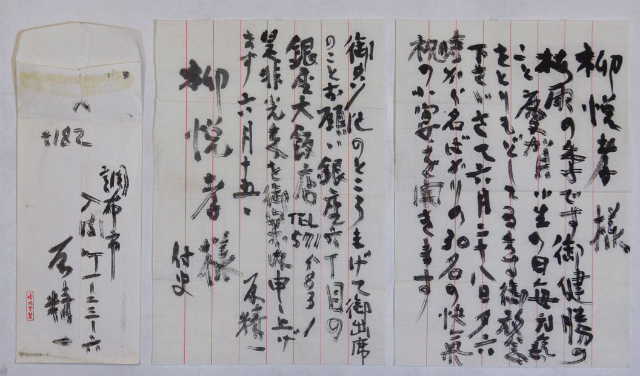 柳悦孝 様
梅雨の季です御健勝の
こと慶賀 小生の日毎元気
をとりもどしてゐます御放念
下さいさて六月二十八日夕六
時から名ばかりの30名の快気
祝の小宴を開きます
御多忙のところまげて御出席
のことお願い銀座六丁目の
銀座大飯店 TEL 571
是非光来を御案内申し上げ
ます 六月十五、
原精一
柳悦孝様
侍史
〒182
調布市
入間町一ー二三ー六
原精一